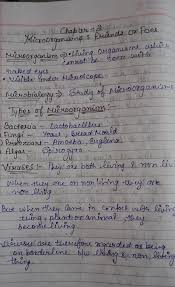 Chapter - 2
Microorganisms : Friends or Foes
Microorganism → Living Organisms which
cannot be seen with
naked eyes
Visible under Microscope
Microbiology → Study of Microorganisms
Types of Microorganism:
Bacteria - Lactobacillus
Fungi - Yeast, Bread Mould
Protozoans - Amoeba, Euglena
Algae - Spirogyra
Viruses :- They are both living & non liv
When they are on non living they are
non living
But when they come in contact with living
thing, plant or animal, they
become living
Viruses are therefore regarded as being
on borderline b/w living & non living
thing.